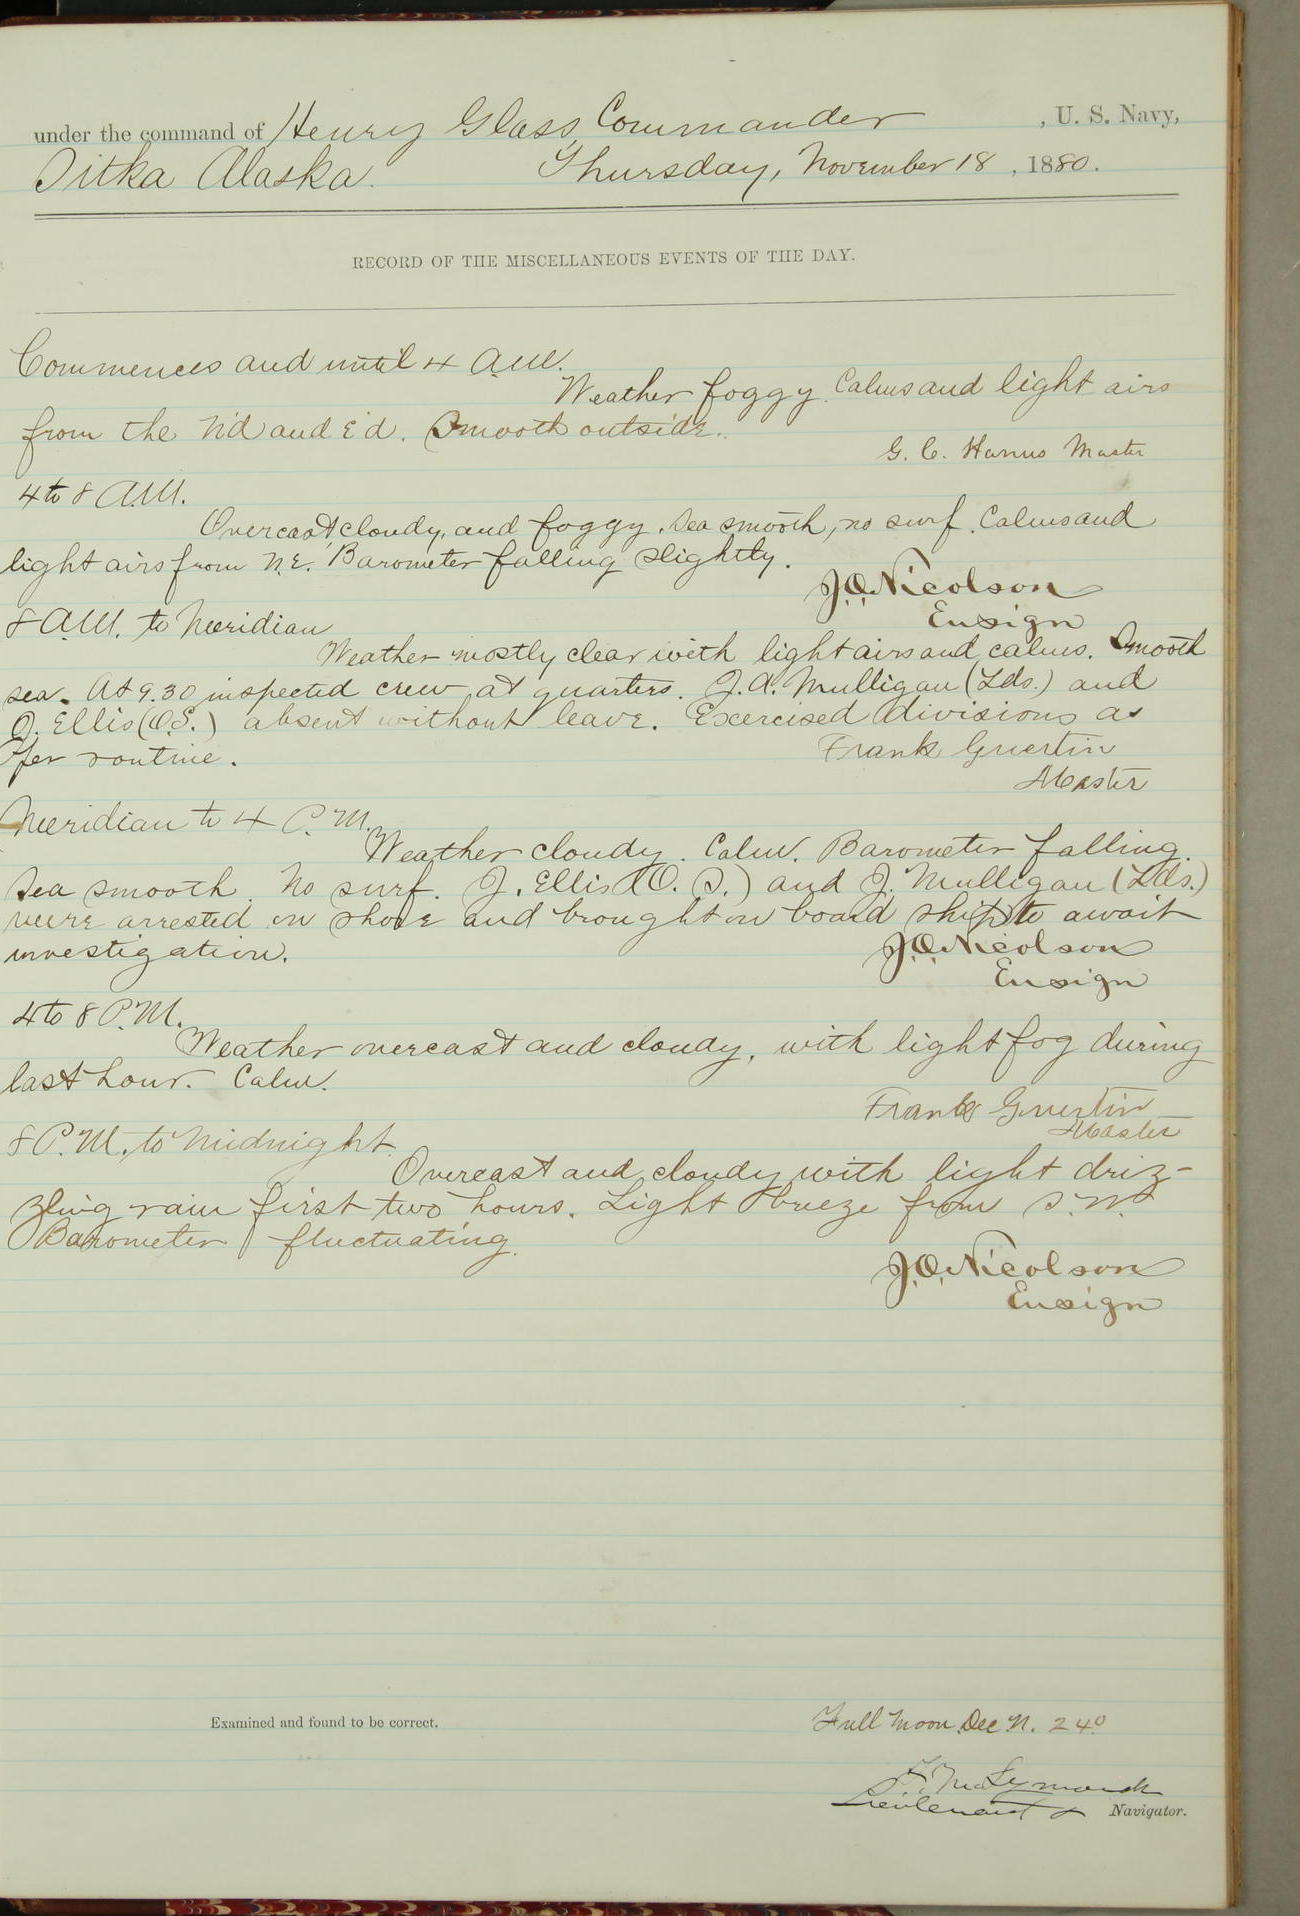 under the command of Henry Glass, Commander , U. S. Navy,
Sitka Alaska. Thursday, November 18 , 1880.
RECORD OF THE MISCELLANEOUS EVENTS OF THE DAY.
Commences and until 4 A.M.
Weather foggy. Calms and light airs
from the N'd and E'd. Smooth outside.
G. C. Hanus Master
4 to 8 A.M.
Overcast, cloudy, and foggy. Sea smooth, no surf. Calms and
light airs from N.E. Barometer falling slightly.
J.O. Nicolson
Ensign
8 A.M. to Meridian
Weather mostly clear with light airs and calms. Smooth
sea. At 9.30 inspected crew at quarters. J. A. Mulligan (Lds.) and
J. Ellis (O.S.) absent without leave. Exercised divisions as
per routine.
Frank Guertin
Master
Meridian to 4 P.M.
Weather cloudy. Calm. Barometer falling.
Sea smooth. No surf. J. Ellis (O. S.) and J. Mulligan (Lds.)
were arrested on shore and brought on board ship to await
investigation.
J.O. Nicolson
Ensign
4 to 8 P.M.
Weather overcast and cloudy, with light fog during
last hour. Calm.
Frank Guertin
Master
8 P.M. to Midnight.
Overcast and cloudy with light driz-
zling rain first two hours. Light breeze from S.W.
Barometer fluctuating.
J.O. Nicolson
Ensign
Examined and found to be correct.
Full Moon. Dec N. 24°
Symonds
Lieutenant & Navigator.